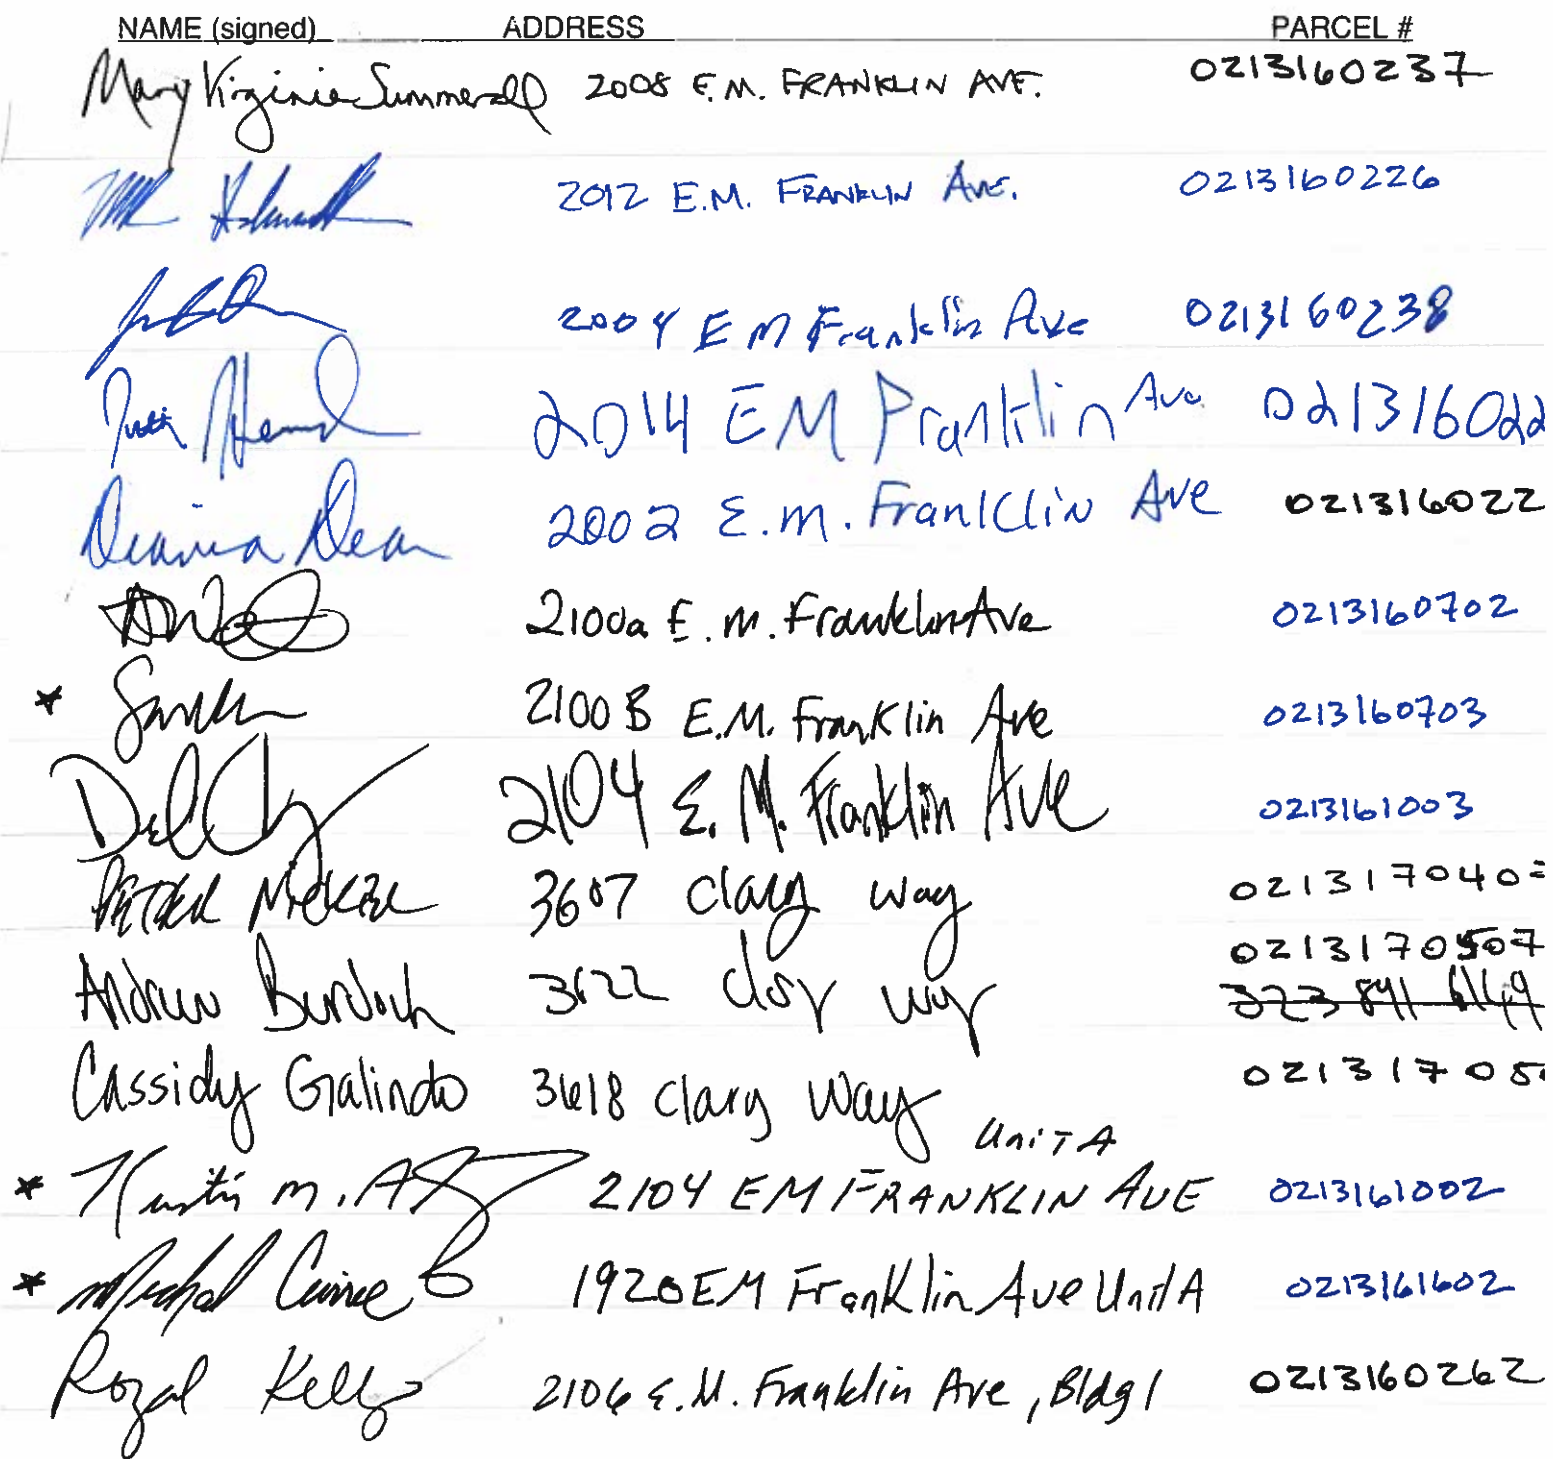 NAME (signed) ADDRESS PARCEL #
Mary Virginia Summerall 2008 E.M. FRANKLIN AVE. 0213160237
2012 E.M. FRANKLIN AVE. 0213160226
2004 EM Franklin Ave 0213160238
2014 EM Franklin Ave 021316022
Deanna Dean 2002 E.M. Franklin Ave 021316022
2100a E.M. Franklin Ave 0213160702
* 2100 B E.M. Franklin Ave 0213160703
2104 E. M. Franklin Ave 0213161003
3607 Clary Way 021317040
Andrew 3622 0213170507
323 841 6149
Cassidy Galindo 3618 Clary Way 02131705
Unit A
* m. 2104 EM FRANKLIN AVE 0213161002
* Michal 1920 EM Franklin Ave Unit A 0213161602
Royal Kelly 2106 E.M. Franklin Ave, Bldg 1 0213160262